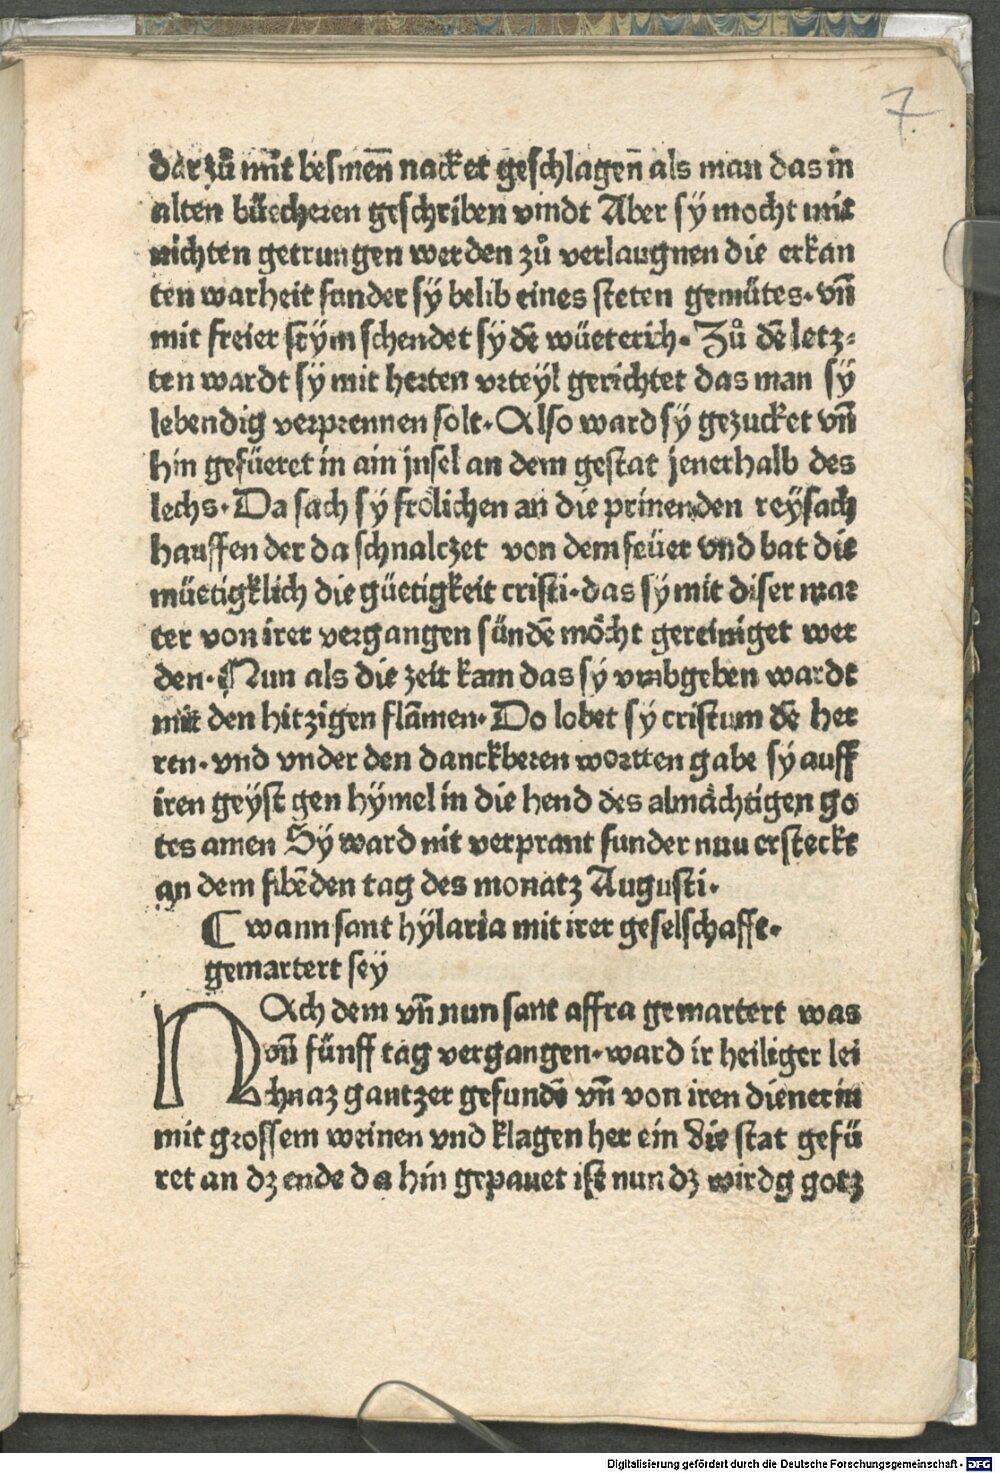 7
dar zů mit besmen̄ nacket geschlagen̄ als man das in
alten büecheren geschriben vindt Aber sy mocht mit
nichten getrungen werden zů verlaugnen die erkan
ten warheit sunder sÿ belib eines steten gemütes · vn̄
mit freier stÿm schendet sÿ dē wüeterich · Zů dē letz⸗
ten wardt sÿ mit herten vrteÿl gerichtet das man sÿ
lebendig verprennen solt · Also ward sÿ gezucket vn̄
hin gefüeret in ain jnsel an dem gestat jenerhalb des
lechs · Da sach sÿ frölichen an die prinenden reÿsach
hauffen der da schnalczet von dem feüer vnd bat die
müetigklich die güetigkeit cristi · das sÿ mit diser mar
ter von irer vergangen sündē möcht gereiniget wer
den · Nun als die zeit kam das sÿ vmbgeben wardt
mit den hitzigen flāmen · Do lobet sÿ cristum dē her
ren · vnd vnder den danckberen wortten gabe sÿ auff
iren geÿst gen hÿmel in die hend des almächtigen go
tes amen Sÿ ward nit verprant sunder nuu ersteckt
an dem sibēden tag des monatz Augusti ·
¶ wann sant hÿlaria mit irer geselschafft ·
gemartert seÿ
NAch dem vn̄ nun sant affra gemartert was
vn̄ fünff tag vergangen · ward ir heiliger lei
chnaz gantzer gefundē vn̄ von iren dienerin
mit grossem weinen vnd klagen her ein die stat gefü
ret an dz ende da hin gepauet ist nun dz wirdg gotz
Digitalisierung gefördert durch die Deutsche Forschungsgemeinschaft - DFG